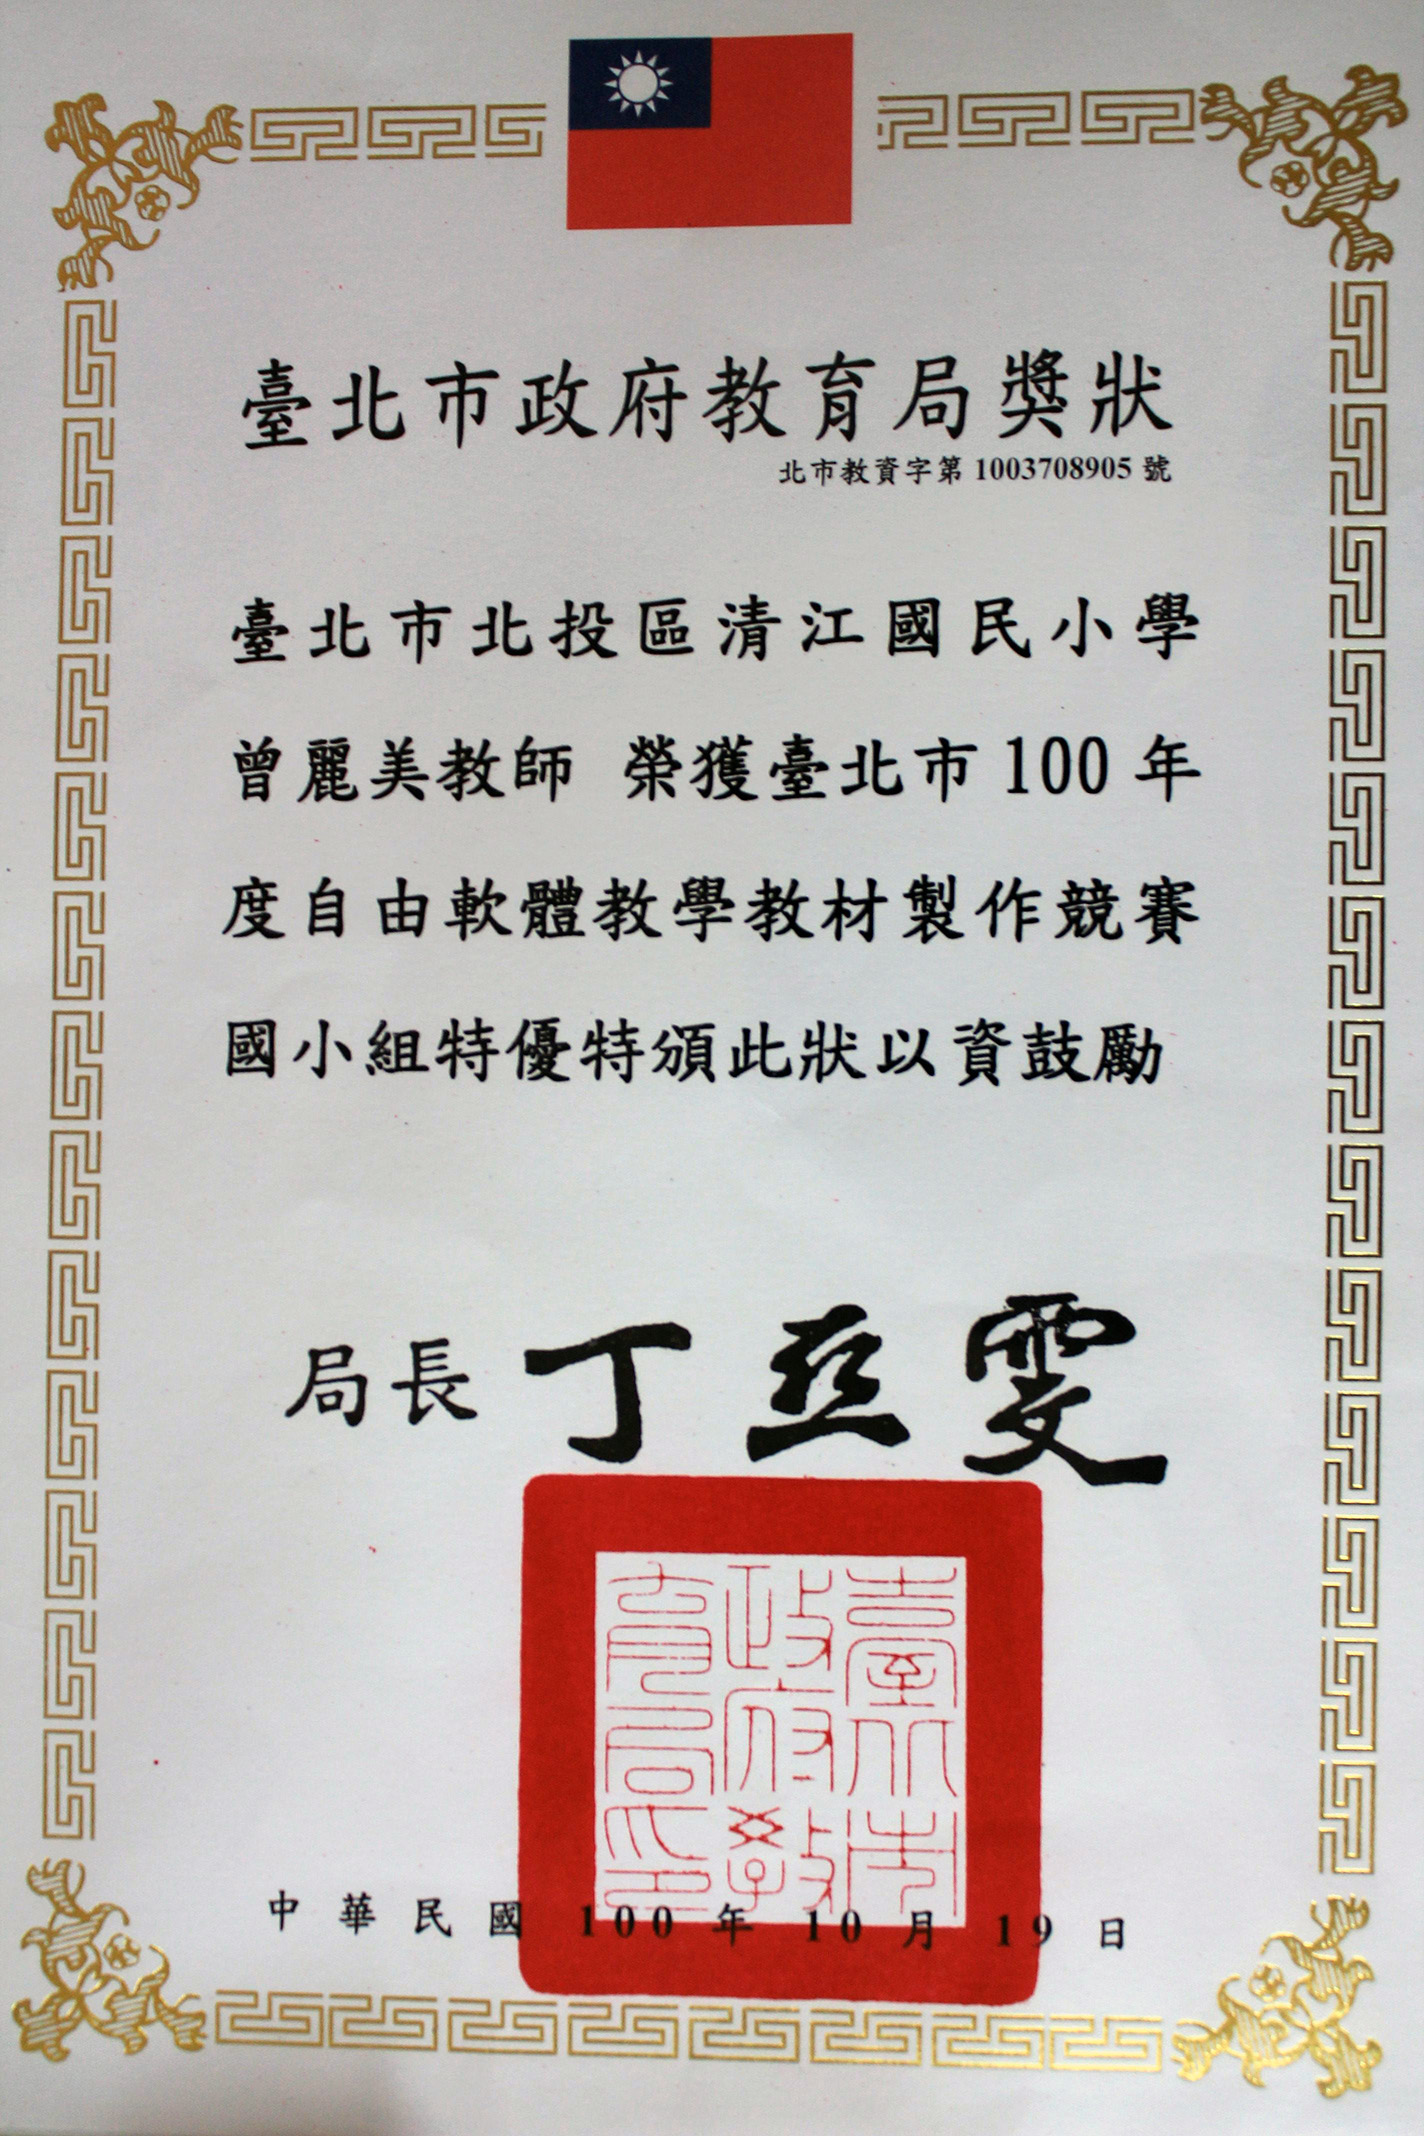 臺北市政府教育局獎狀
北市教資字第1003708905號
臺北市北投區清江國民小學
曾麗美教師 榮獲臺北市100年
度自由軟體教學教材製作競賽
國小組特優特頒此狀以資鼓勵
局長 丁亞雯
臺北市
政府教
育局印
中華民國 100 年 10 月 19 日